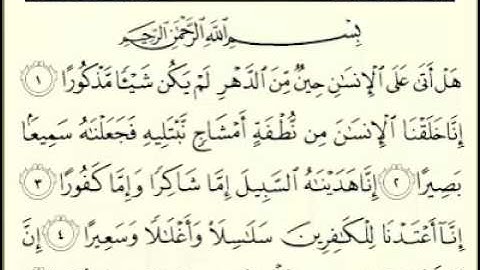 بِسْمِ اللَّهِ الرَّحْمَٰنِ الرَّحِيمِ
هَلْ أَتَىٰ عَلَى ٱلْإِنسَٰنِ حِينٌ مِّنَ ٱلدَّهْرِ لَمْ يَكُن شَيْـًٔا مَّذْكُورًا ١
إِنَّا خَلَقْنَا ٱلْإِنسَٰنَ مِن نُّطْفَةٍ أَمْشَاجٍ نَّبْتَلِيهِ فَجَعَلْنَٰهُ سَمِيعًۢا
بَصِيرًا ٢ إِنَّا هَدَيْنَٰهُ ٱلسَّبِيلَ إِمَّا شَاكِرًا وَإِمَّا كَفُورًا ٣
إِنَّآ أَعْتَدْنَا لِلْكَٰفِرِينَ سَلَٰسِلَا۟ وَأَغْلَٰلًا وَسَعِيرًا ٤ إِنَّ